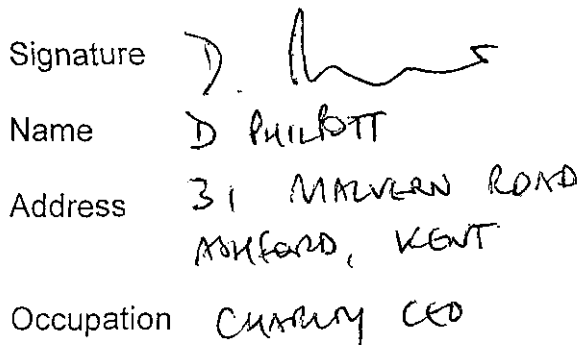 Signature D.
Name D PHILPOTT
Address 31 MALVERN ROAD
ASHFORD, KENT
Occupation CHARITY CEO